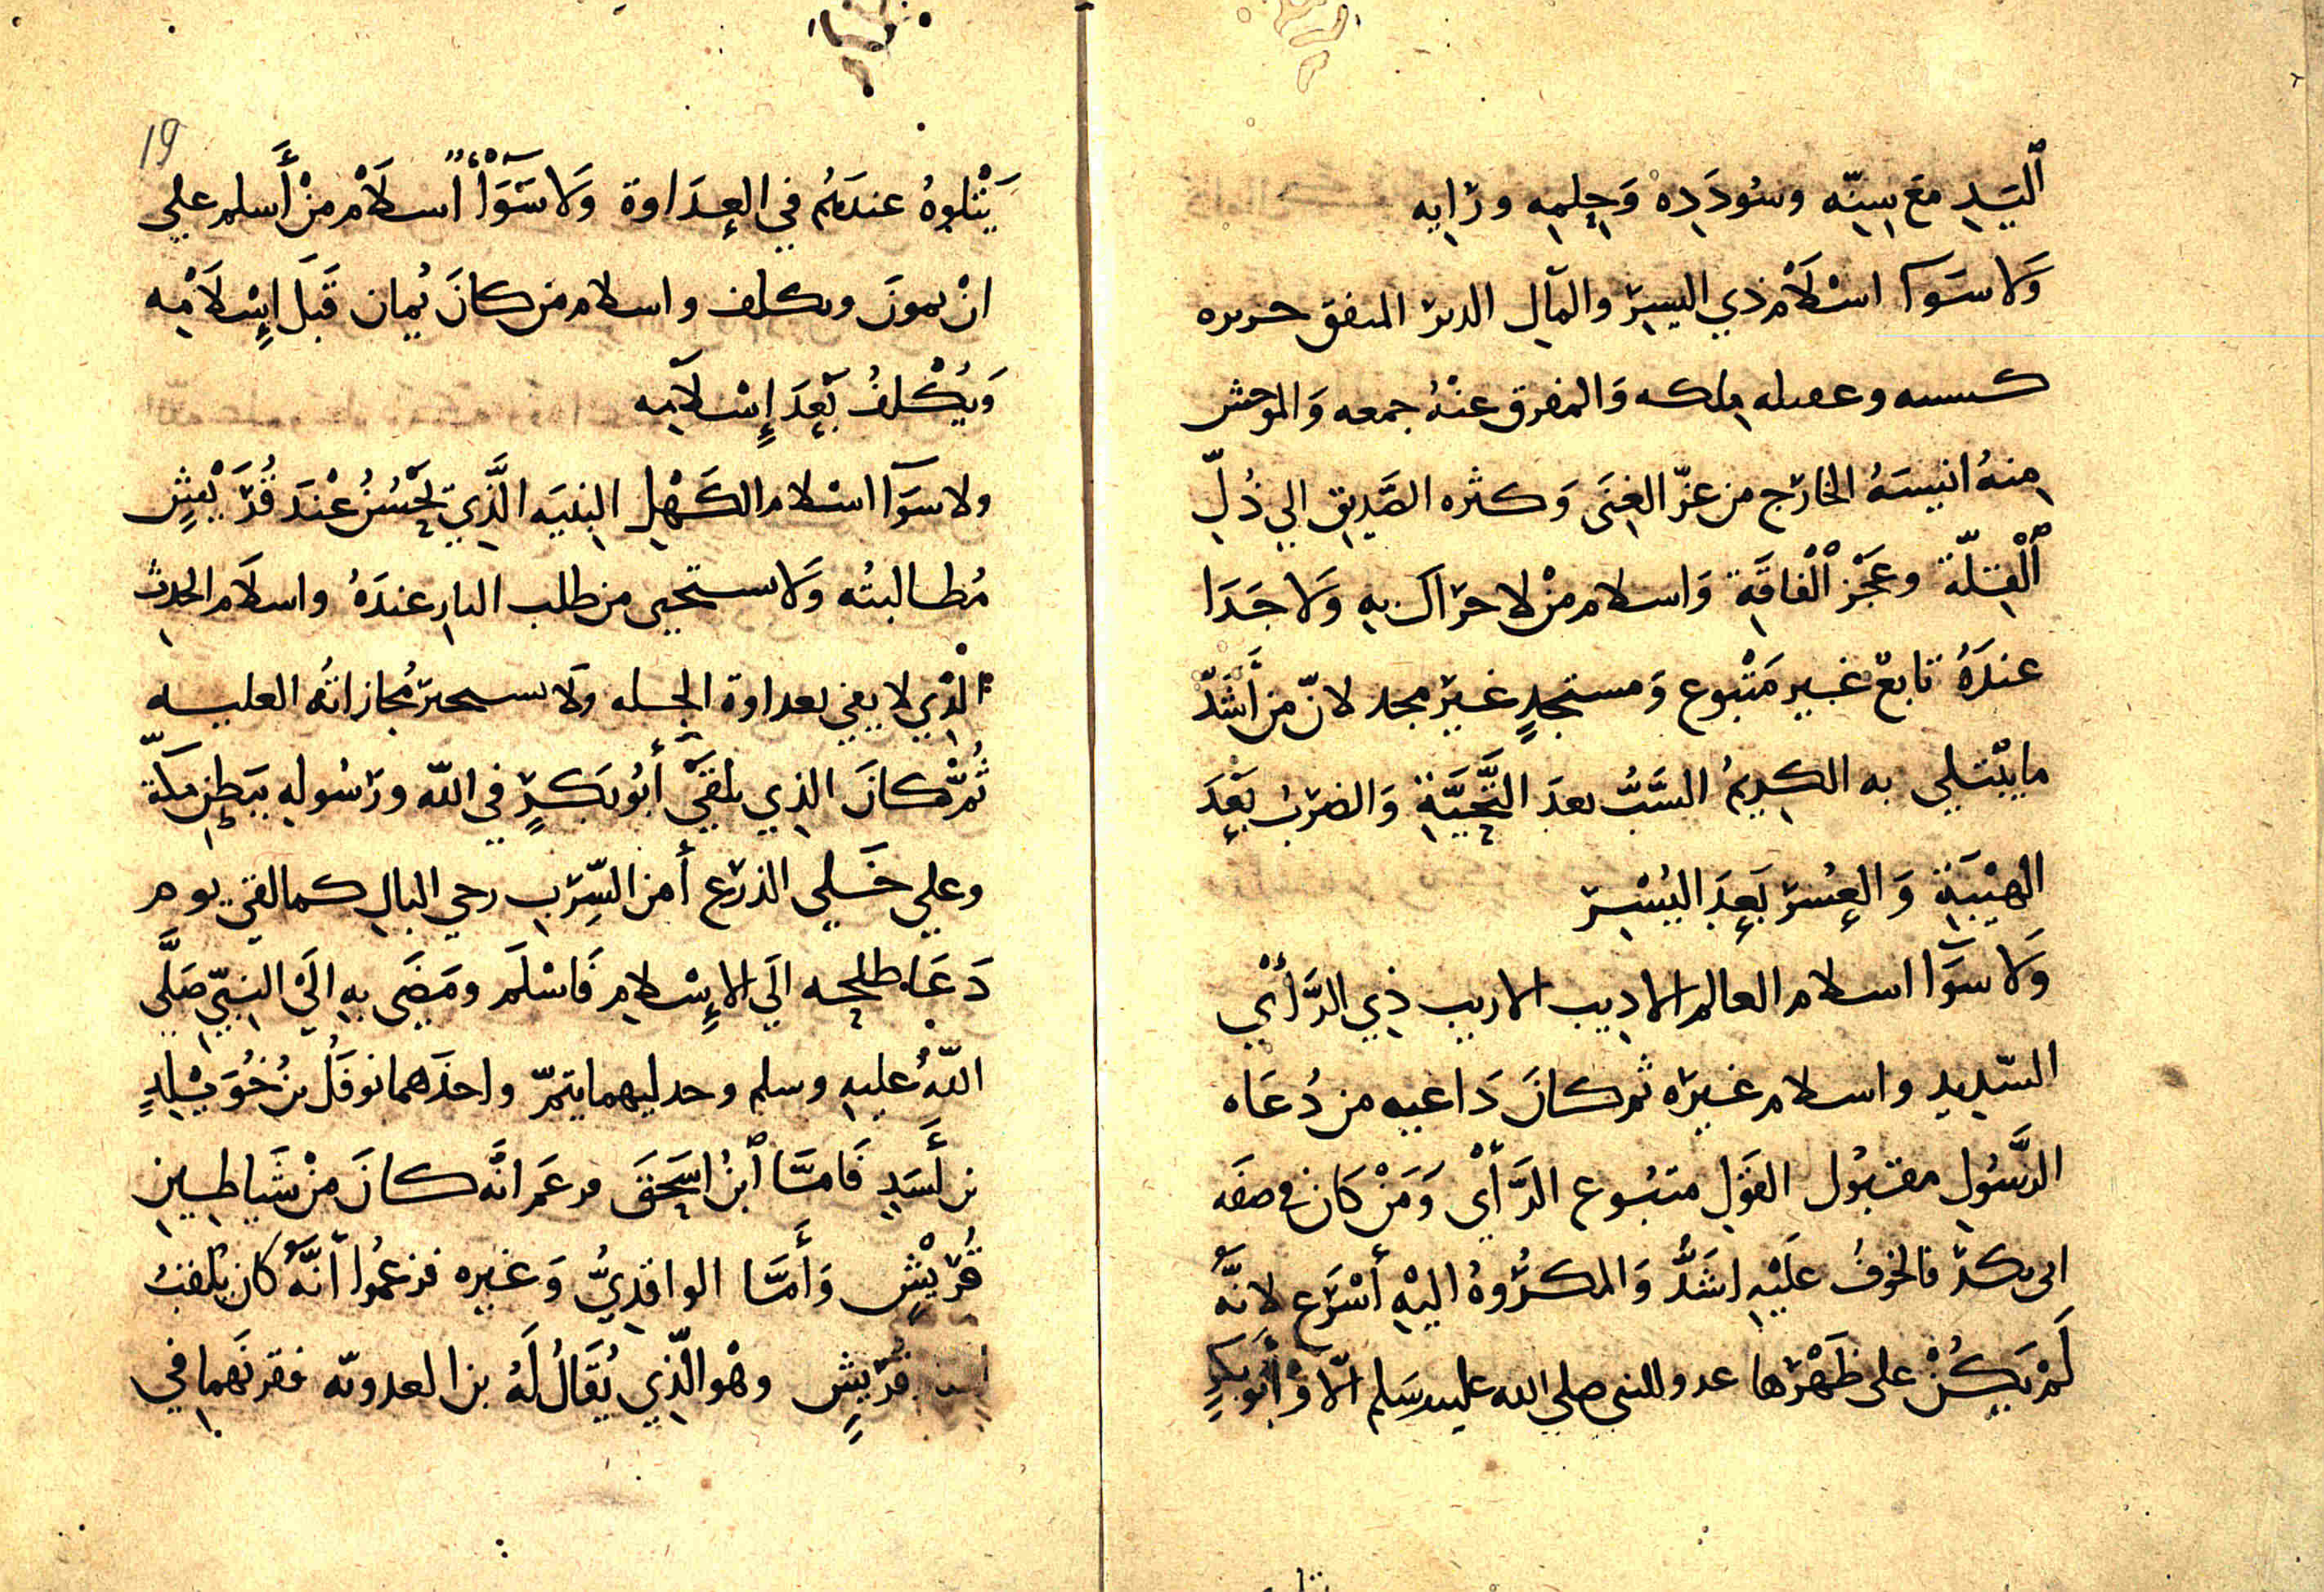 اليَدِ مَع سِنِّه وسُودَدِه وَحِلمِه ورَايِه
وَلا سَوَآ اسْلَامْ ذي اليسِرّ والمآلِ الدبر المنفق حريره
كسسه وعصله مِلكه وَالمفرق عنْهُ جمعه وَالموحش
مِنهُ انيسَهُ الخارج من عزّ الغِنَى وَكثره الصَّديِق الي ذُلِّ
ٱلْقِلّة وعَجْز ٱلْفاقَةِ وَاسلام مْن لا حراك بهِ وَلا جَدَا
عندَهُ تابعٌ غير مَتْبوع وَمستجدٍ غير مجد لانّ من أَشَدّ
ما يبْتلي به الكريمُ السَّبُّ بعدَ التَّحِيَّةِ وَالضربُ بَعْدَ
الهيْبَةِ وَالعِسُر بَعدَ اليُسْرِ
وَلا سَوَآ اسلام العالم الاديب الاريب ذِي الرَّأْيِ
السّدِيدِ واسلام غيره ثم كانَ دَاعيه من دُعَاه
الرَّسُولِ مقبُول القَوْلِ متبُوع الرَّأْيِ وَمَنْ كان في صفَه
ابى بكر فالخوفُ عَلَيْهِ اشَدُّ وَالمكرُوهُ اليْهِ أسْرَع لانَّهُ
لَمْ يَكُنْ على ظَهْرها عدو للنبي صلي الله عليه وسَلم الّا وْ أَبُو بَكرٍ
19
يَتْلوهُ عندَهُمُ في العِدَاوة وَلا سَوَآءً اسلَامْ مَنْ أَسلم علي
انْ يمونَ ويكلف واسلام من كانَ يُمان قَبلَ إِسْلَامِه
وَيُكْلفُ بَعْدَ إِسْلَامِه
ولا سَوَآ اسْلام الكَهْلِ البِنيَه الَّذِي يَحْسُنُ عْندَ قُرَيْشٍ
مُطالبتُه وَلا ستحيى من طلب الثارِ عندَهُ واسلَام الحدثِ
الَّذِي لا يفي بعداوة الجِله وَلا يسحر مُجازاتُه العليه
ثُمَّ كانَ الذِي يلقىَ أَبُو بَكرٍ في الله ورَسُولهِ بِبَطِن مَكّة
وعلي خَلي الذرع أمن السِّربِ رخي البالِ كما لقي يوم
دَعَا طلحه الَي الإِسْلامِ فَاسْلَم ومَضَى بهِ الَيْ النبيّ صَلَّى
اللّهُ عليهِ وسلم وحد ليهما يتمرّ واحذَهما نوفَلُ بنُ خُوَيْلدٍ
بن أَسَدِ فَامَّا ٱبنُ اسحَقَ فرعَم انّه كانَ مْن شَياطِين
قُرَيْشٍ وَأمَّا الواقدِيُّ وَغيره فزعمُوا اَنَّهُ كان يُلقبُ
أسد قُرَيشٍ وهْو الّذِي يُقَالُ لَهُ بن العدويّه فقرنَهما في